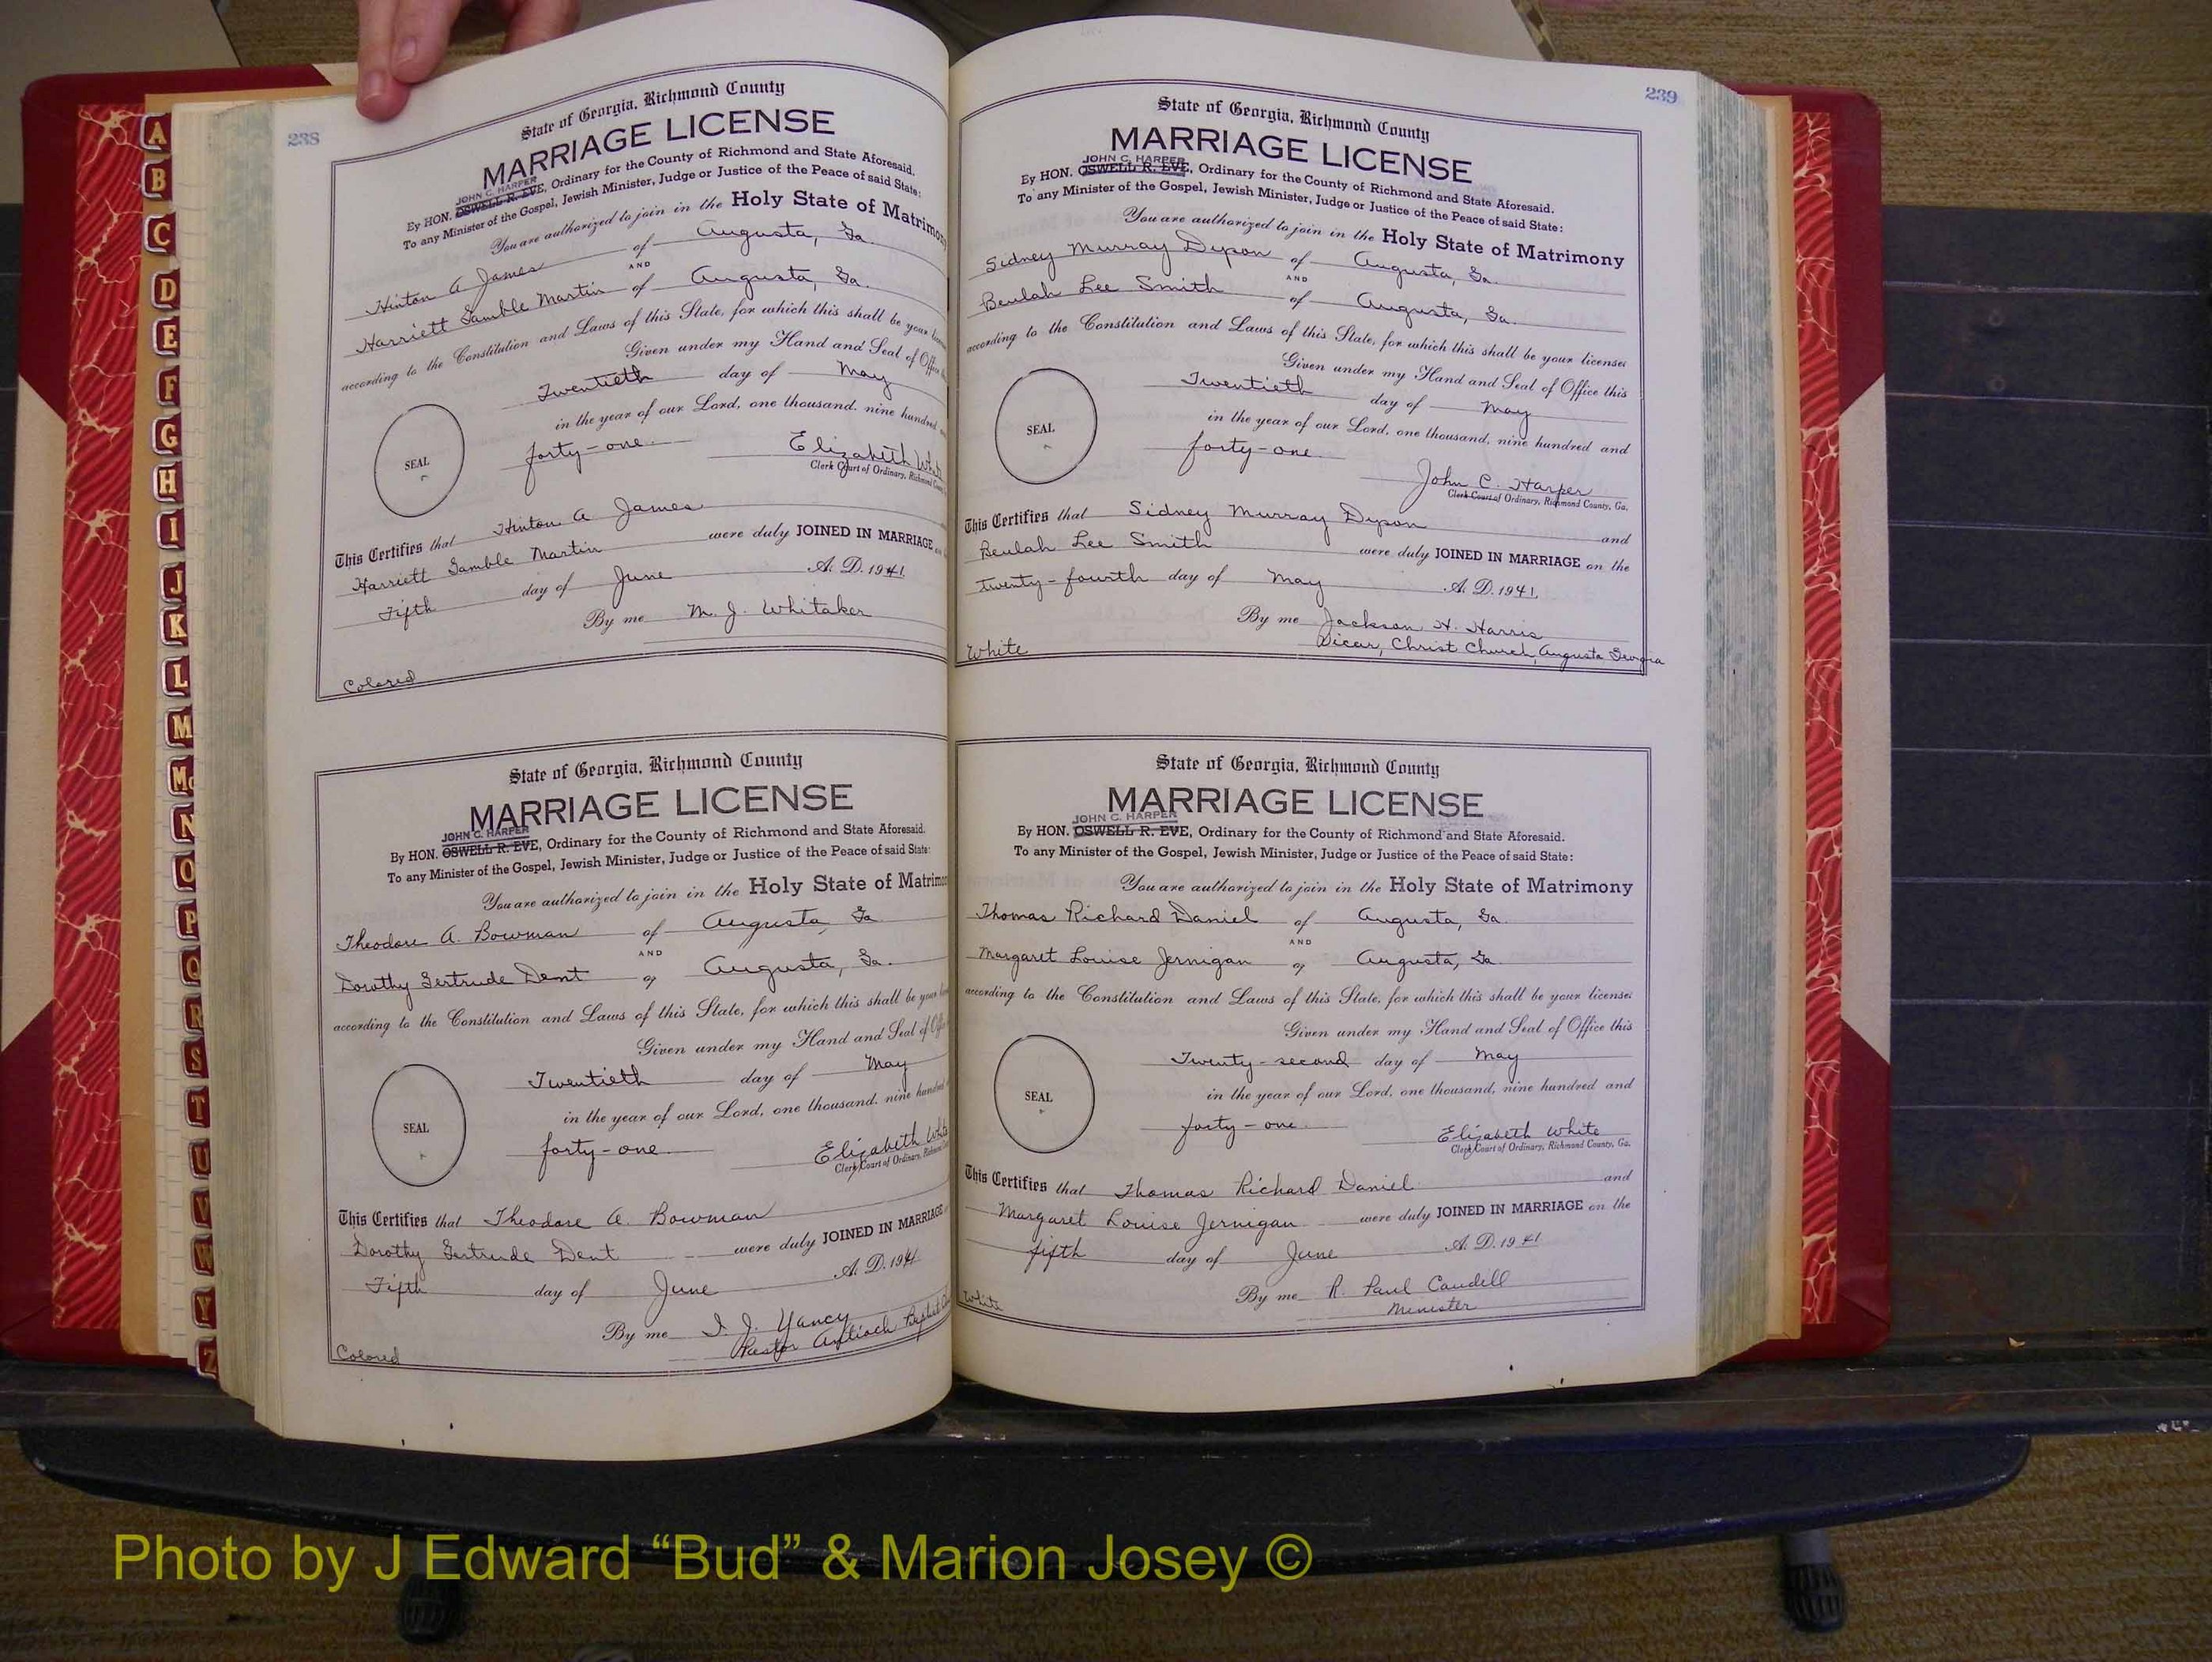 238
State of Georgia, Richmond County
MARRIAGE LICENSE
JOHN C. HARPER
By HON. OSWELL R. EVE, Ordinary for the County of Richmond and State Aforesaid.
To any Minister of the Gospel, Jewish Minister, Judge or Justice of the Peace of said State:
You are authorized to join in the Holy State of Matrimony
Hinton A James of Augusta, Ga.
AND
Harriett Gamble Martin of Augusta, Ga.
according to the Constitution and Laws of this State, for which this shall be your
Given under my Hand and Seal of Office
Twentieth day of May
in the year of our Lord, one thousand, nine hundred
forty-one
SEAL
Elizabeth
Clerk Court of Ordinary, Richmond
This Certifies that Hinton A James
Harriett Gamble Martin were duly JOINED IN MARRIAGE
Fifth day of June A. D. 1941.
By me M. J. Whitaker
Colored
State of Georgia, Richmond County
MARRIAGE LICENSE
JOHN C. HARPER
By HON. OSWELL R. EVE, Ordinary for the County of Richmond and State Aforesaid.
To any Minister of the Gospel, Jewish Minister, Judge or Justice of the Peace of said State:
You are authorized to join in the Holy State of
Theodore A. Bowman of Augusta, Ga
AND
Dorothy Gertrude Dent of Augusta, Ga.
according to the Constitution and Laws of this State, for which this shall be your
Given under my Hand and Seal of
Twentieth day of May
in the year of our Lord, one thousand, nine
forty-one
SEAL
Elizabeth
Clerk Court of Ordinary,
This Certifies that Theodore A. Bowman
Dorothy Gertrude Dent were duly JOINED IN MARRIAGE
Fifth day of June A. D. 1941
By me I. J. Yancy
Pastor Antioch Baptist
Colored
239
State of Georgia, Richmond County
MARRIAGE LICENSE
JOHN C. HARPER
By HON. OSWELL R. EVE, Ordinary for the County of Richmond and State Aforesaid.
To any Minister of the Gospel, Jewish Minister, Judge or Justice of the Peace of said State:
You are authorized to join in the Holy State of Matrimony
Sidney Murray Dyson of Augusta, Ga.
AND
Beulah Lee Smith of Augusta, Ga.
according to the Constitution and Laws of this State, for which this shall be your license:
Given under my Hand and Seal of Office this
Twentieth day of May
in the year of our Lord, one thousand, nine hundred and
forty-one
SEAL
John C. Harper
Clerk Court of Ordinary, Richmond County, Ga.
This Certifies that Sidney Murray Dyson and
Beulah Lee Smith were duly JOINED IN MARRIAGE on the
Twenty-fourth day of May A. D. 1941.
By me Jackson H. Harris
Vicar, Christ Church, Augusta Georgia
White
State of Georgia, Richmond County
MARRIAGE LICENSE
JOHN C. HARPER
By HON. OSWELL R. EVE, Ordinary for the County of Richmond and State Aforesaid.
To any Minister of the Gospel, Jewish Minister, Judge or Justice of the Peace of said State:
You are authorized to join in the Holy State of Matrimony
Thomas Richard Daniel of Augusta, Ga.
AND
Margaret Louise Jernigan of Augusta, Ga.
according to the Constitution and Laws of this State, for which this shall be your license:
Given under my Hand and Seal of Office this
Twenty-second day of May
in the year of our Lord, one thousand, nine hundred and
forty-one
SEAL
Elizabeth White
Clerk Court of Ordinary, Richmond County, Ga.
This Certifies that Thomas Richard Daniel and
Margaret Louise Jernigan were duly JOINED IN MARRIAGE on the
fifth day of June A. D. 1941
By me R. Paul Caudill
Minister
White
A
B
C
D
E
F
G
H
I
J
K
L
M
Mc
N
O
P
Q
R
S
T
U
V
W
Y
Z
Photo by J Edward “Bud” & Marion Josey ©